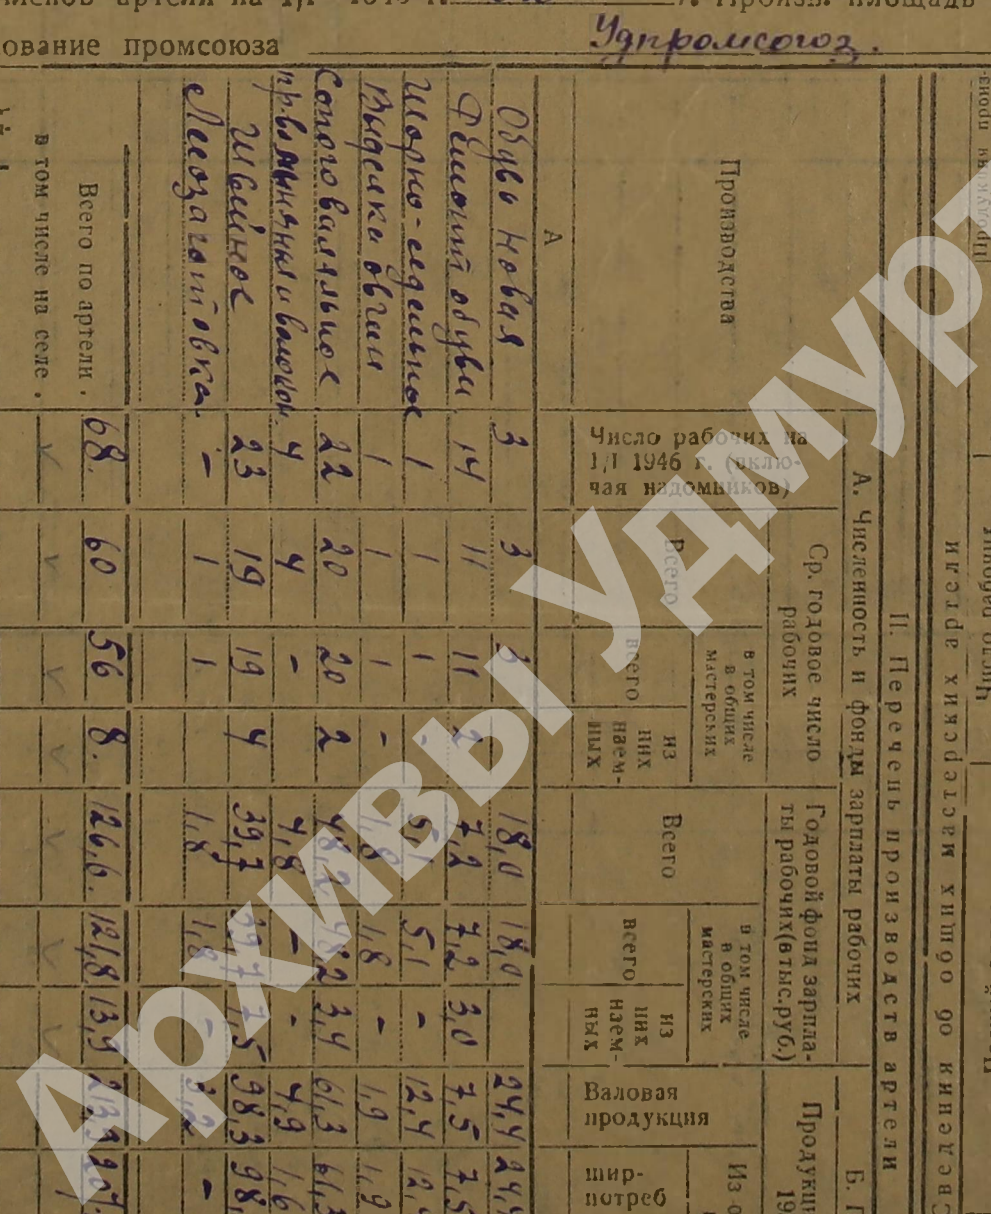 членов артели на 1/I
ование промсоюза Удпромсоюз.
Сведения об общих мастерских артели
II. Перечень производств артели
А. Численность и фонды зарплаты рабочих
Б.
Производства
Число рабочих на
1/I 1946 г. (вклю-
чая надомников)
Ср. годовое число
рабочих
Всего
в том числе
в общих
мастерских
всего
из
них
наем-
ных
Годовой фонд зарпла-
ты рабочих (в тыс. руб.)
Всего
в том числе
в общих
мастерских
всего
из
них
наем-
ных
Валовая
продукция
шир-
потреб
А
Обувь новая 3 3 3 18,0 18,0 24,4 24,4
Ремонт обуви 14 11 11 2 7,2 7,2 3,0 7,5 7,5
Шорно-седельное 1 1 1 - 5,1 5,1 - 12,4
Выделка овчин 1 1 1 - 1,8 1,8 - 1,9 1,9
Сапоговаляльное 22 20 20 2 48,2 48,2 3,4 61,3 61,3
4 4 - 4,8 - - 4,9 1,6
Швейное 23 19 19 4 39,7 39,7 7,5 98,3
Лесозаготовка - 1 1 1,8 1,8 - 3,2 -
Всего по артели. 68. 60 56 8. 126,6. 121,8 13,9 213,9
в том числе на селе. v v v v v v v
Архивы Удмурт